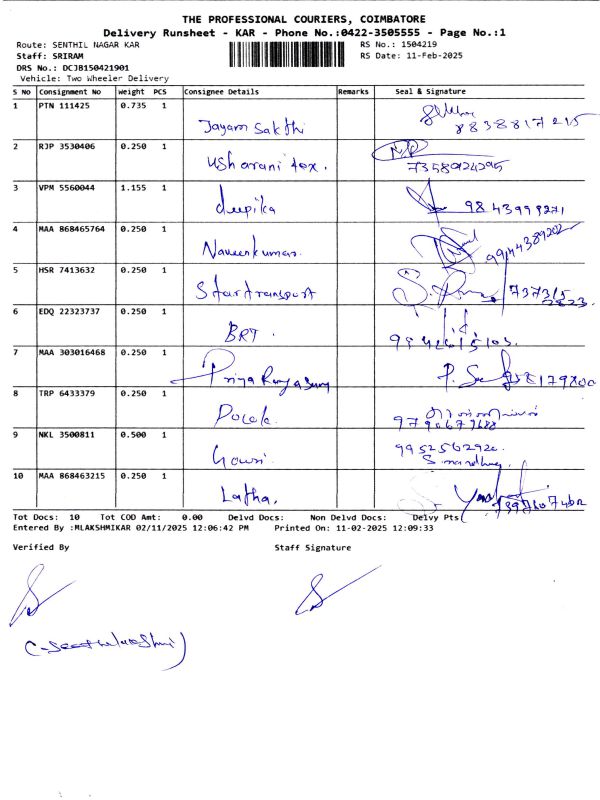 THE PROFESSIONAL COURIERS, COIMBATORE
Delivery Runsheet - KAR - Phone No.:0422-3505555 - Page No.:1
Route: SENTHIL NAGAR KAR
RS No.: 1504219
Staff: SRIRAM
RS Date: 11-Feb-2025
DRS No.: DCJB150421901
Vehicle: Two Wheeler Delivery
S No Consignment No Weight PCS Consignee Details Remarks Seal & Signature
1 PTN 111425 0.735 1
Jayam Sakthi 8838817215
2 RJP 3530406 0.250 1
Usharani tex. 7358924295
3 VPM 5560044 1.155 1
deepika 9843999271
4 MAA 868465764 0.250 1
Naveenkumar. 9944389202
5 HSR 7413632 0.250 1
Startransport
6 EDQ 22323737 0.250 1
BRT.
7 MAA 303016468 0.250 1
Priya
8 TRP 6433379 0.250 1
9 NKL 3500811 0.500 1
Gowri. 9952562920
10 MAA 868463215 0.250 1
Latha.
Tot Docs: 10 Tot COD Amt: 0.00 Delvd Docs: Non Delvd Docs: Delvy Pts
Entered By :MLAKSHMIKAR 02/11/2025 12:06:42 PM Printed On: 11-02-2025 12:09:33
Verified By Staff Signature